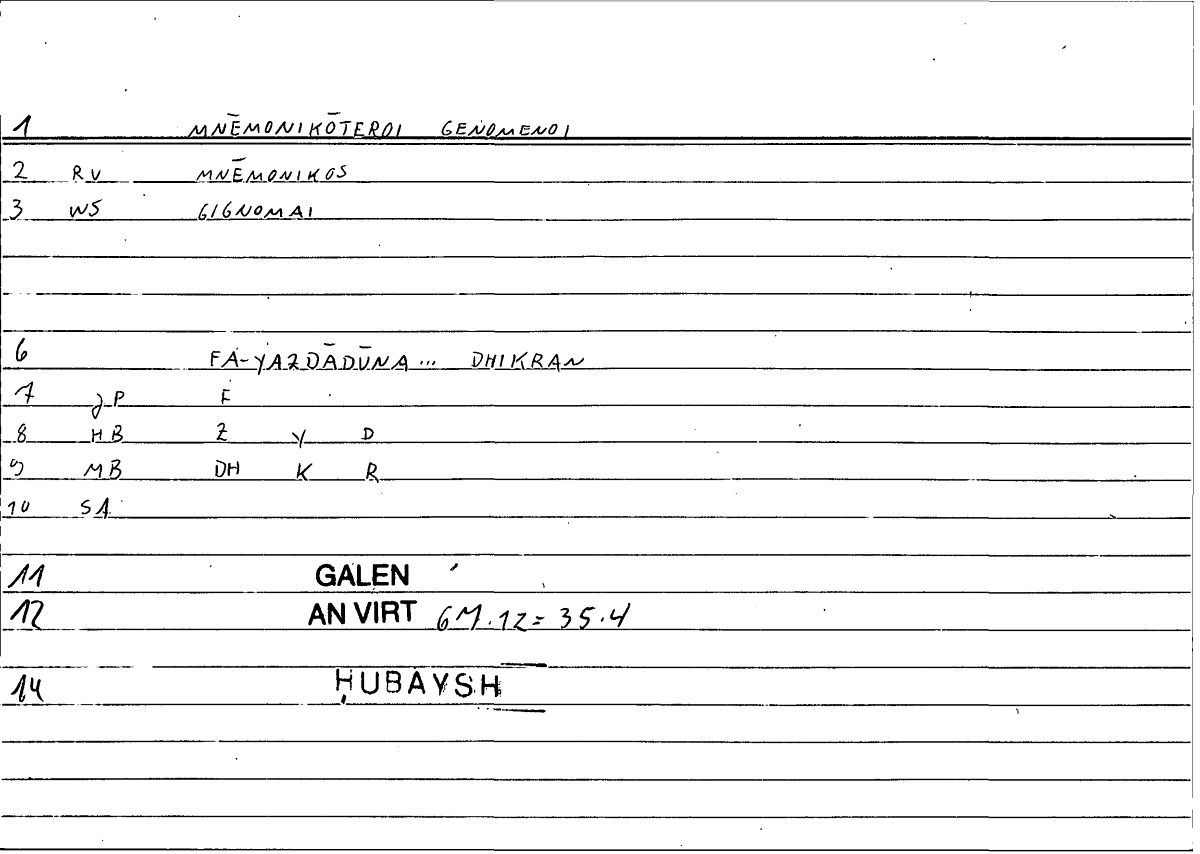 1 MNĒMONIKŌTEROI GENOMENOI
2 RV MNĒMONIKOS
3 WS GIGNOMAI
6 FA-YAZDĀDŪNA... DHIKRAN
7 JP F
8 HB Z Y D
9 MB DH K R
10 SA
11 GALEN
12 AN VIRT 6M.12=35.4
14 ḤUBAYSH